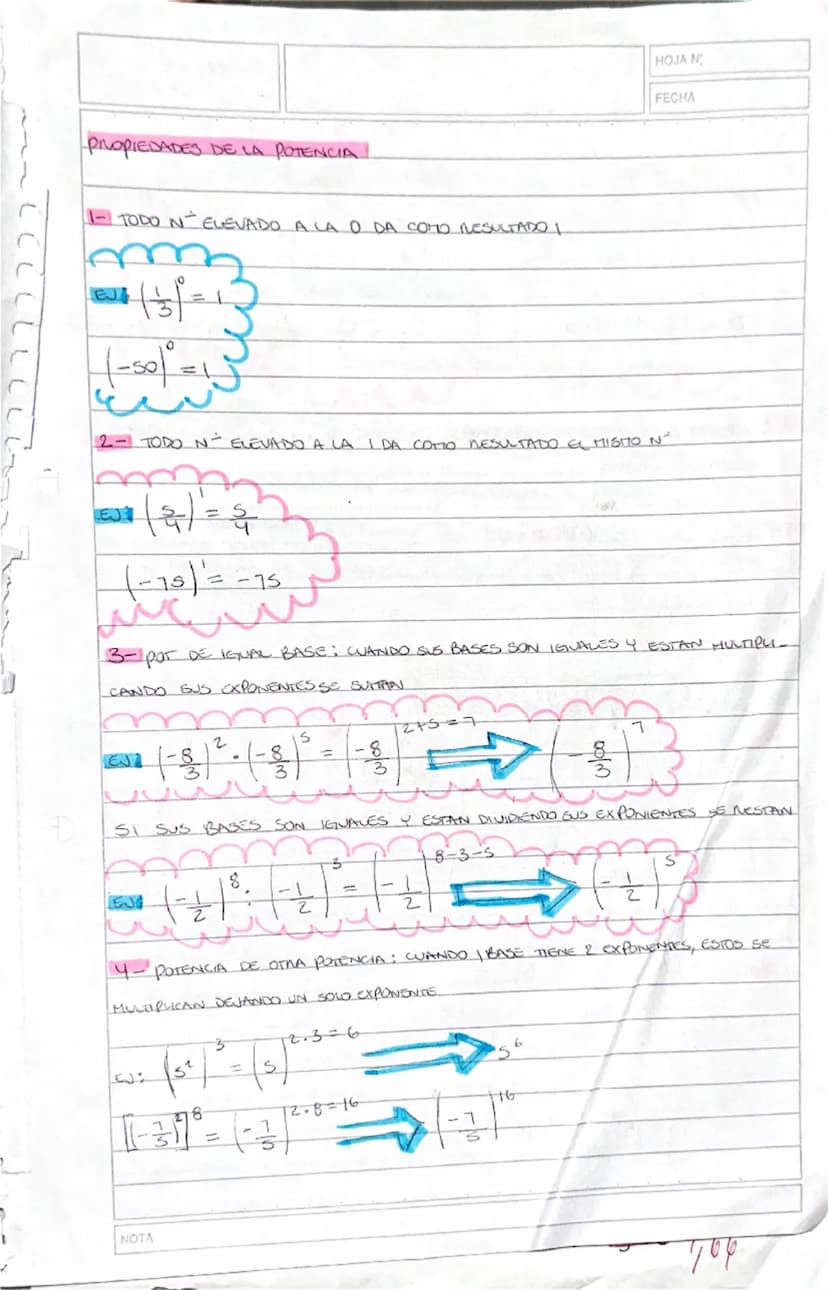 HOJA N°:
FECHA
PROPIEDADES DE LA POTENCIA
1- TODO N° ELEVADO A LA 0 DA COMO RESULTADO 1
EJ: (1/3)⁰ = 1
(-50)⁰ = 1
2- TODO N° ELEVADO A LA 1 DA COMO RESULTADO EL MISMO N°
EJ: (5/4)¹ = 5/4
(-75)¹ = -75
3- POT DE IGUAL BASE: CUANDO SUS BASES SON IGUALES Y ESTAN MULTIPLI-
CANDO SUS EXPONENTES SE SUMAN
EJ: (-8/3)² · (-8/3)⁵ = (-8/3)²⁺⁵⁼⁷ ⇒ (-8/3)⁷
SI SUS BASES SON IGUALES Y ESTAN DIVIDIENDO SUS EXPONIENTES SE RESTAN
EJ: (-1/2)⁸ : (-1/2)³ = (-1/2)⁸⁻³⁻⁵ ⇒ (-1/2)⁵
4- POTENCIA DE OTRA POTENCIA: CUANDO 1 BASE TIENE 2 EXPONENTES, ESTOS SE
MULTIPLICAN DEJANDO UN SOLO EXPONENTE
EJ: (5²)³ = (5)^2·3=6 ⇒ 5⁶
[(-7/5)²]⁸ = (-7/5)^2·8=16 ⇒ (-7/5)¹⁶
NOTA